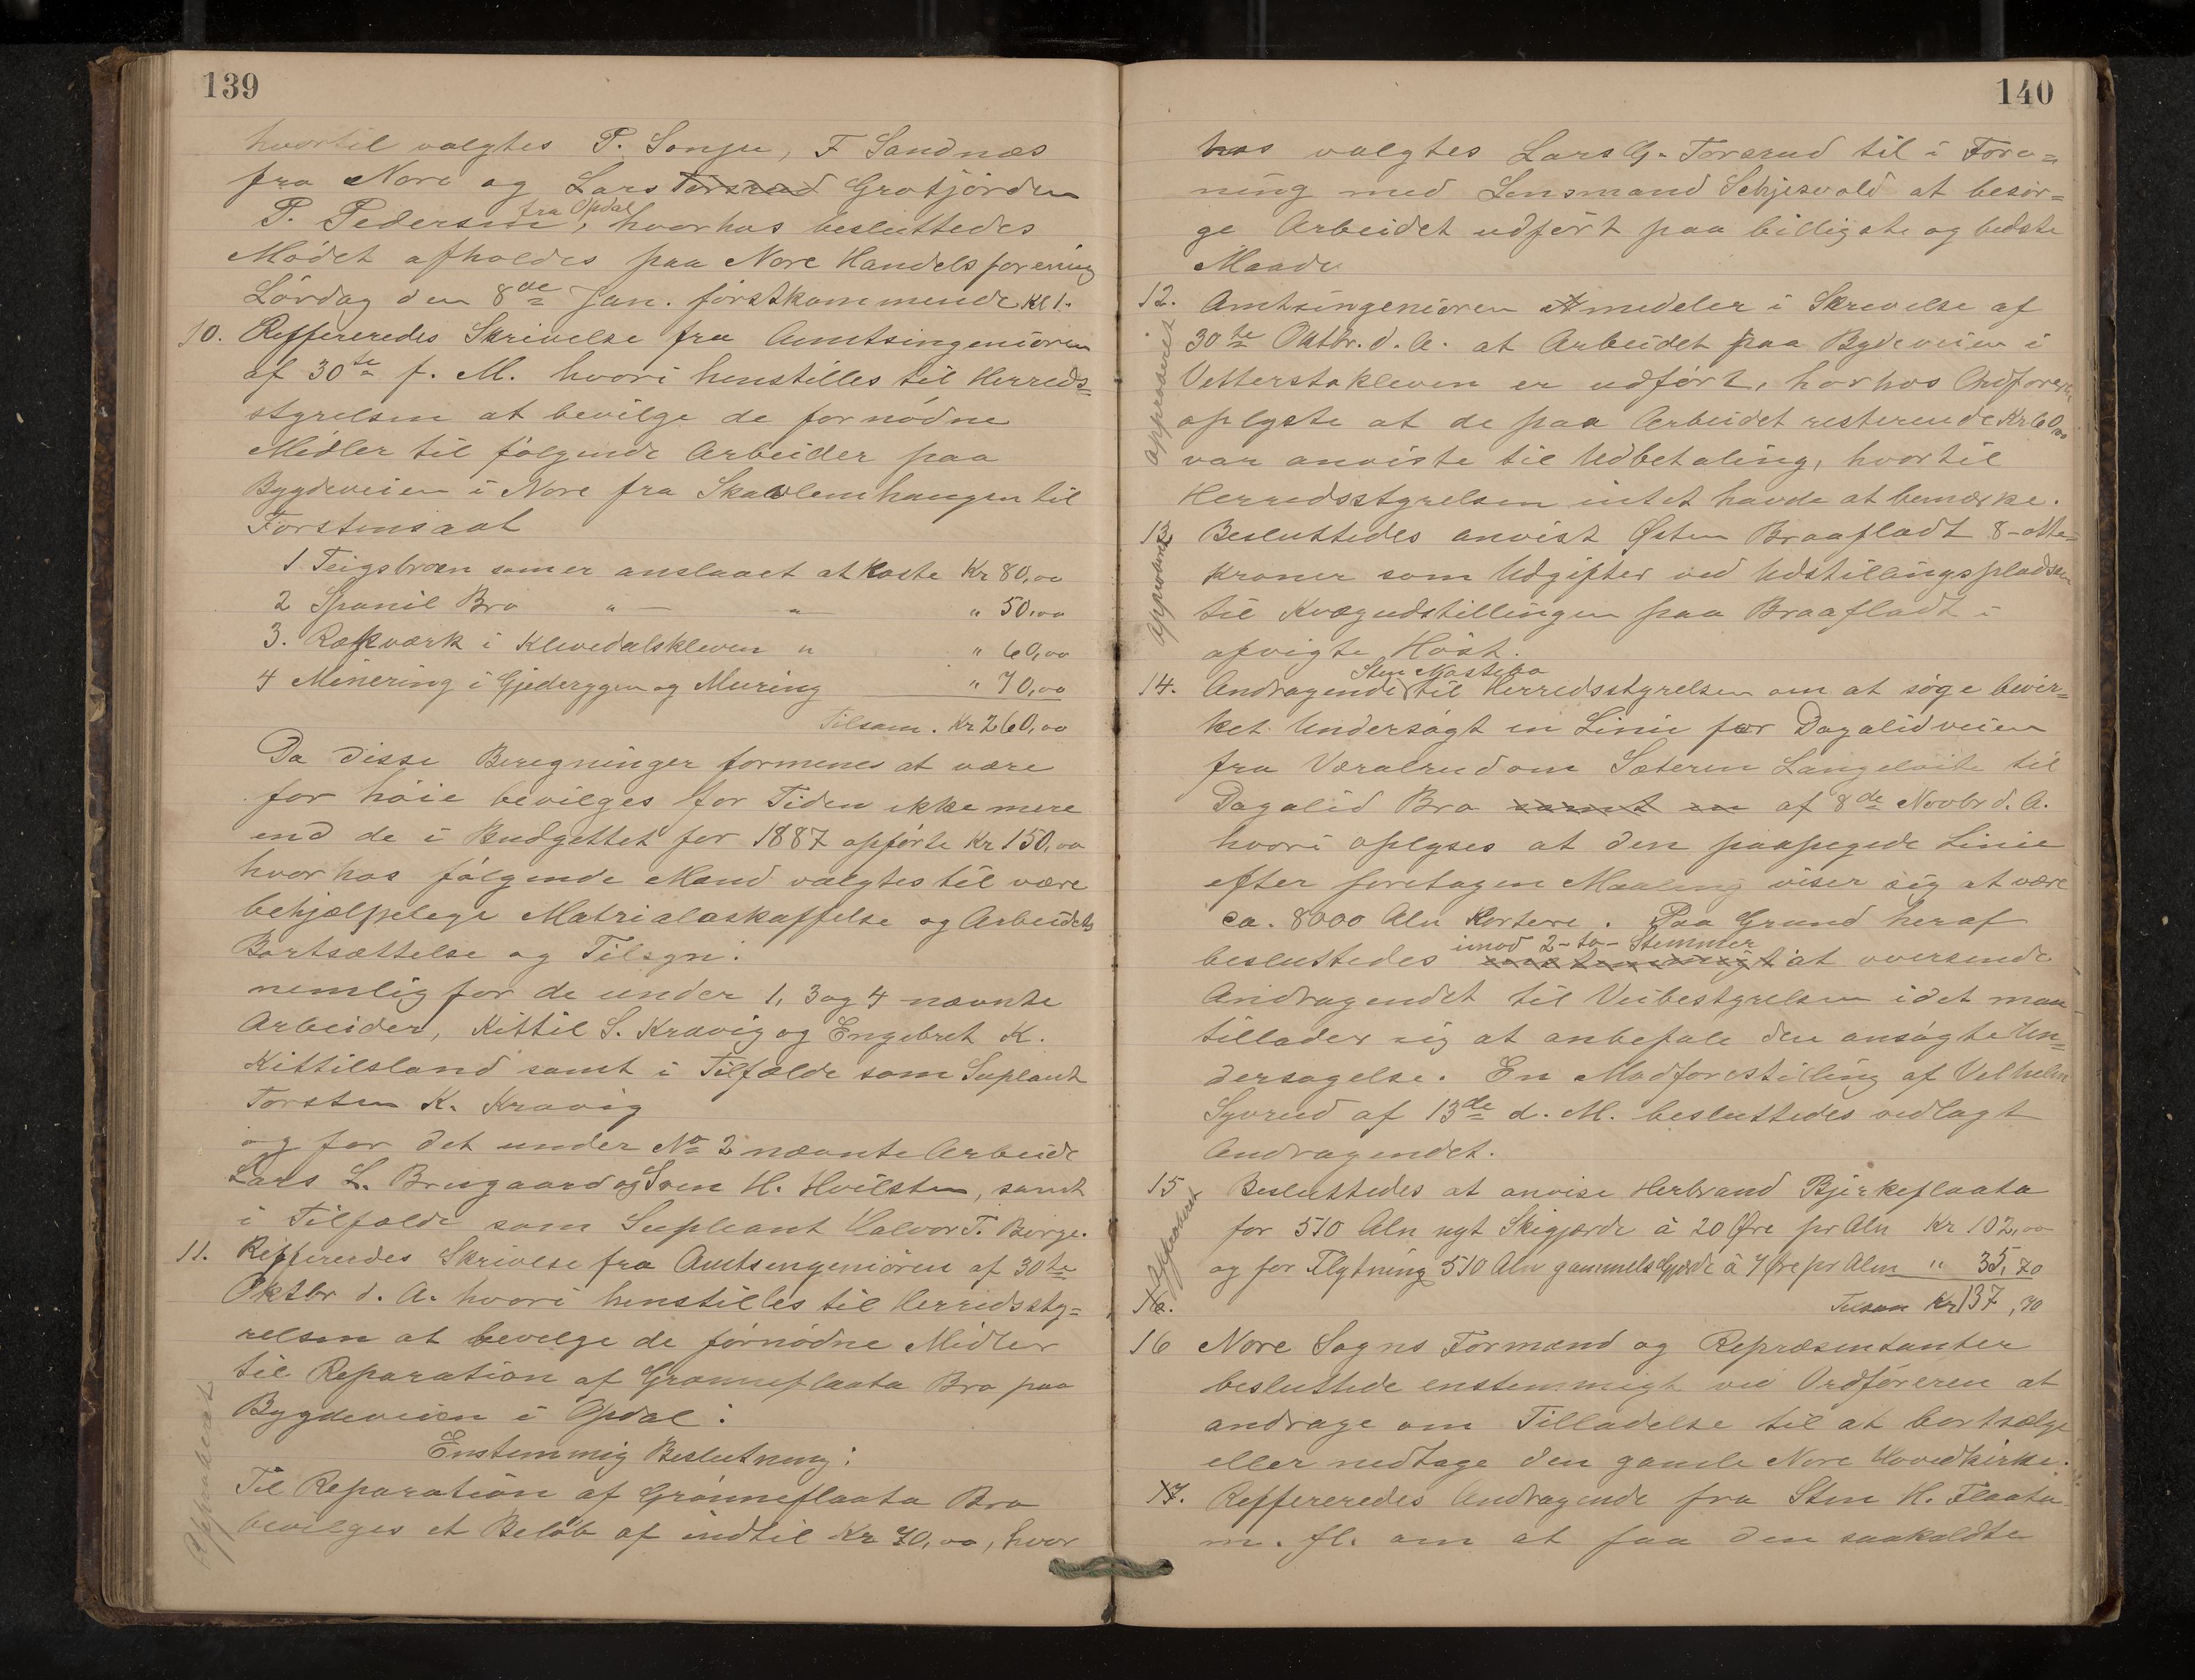 139
hvortil valgtes P. Sonju, F Sandnæs
fra Nore og Lars Torsrud Grotjorden
fra Opdal
P. Pedersen, hvorhos besluttedes
Mödet afholdes paa Nore Handelsforening
Lördag den 8de Jan. förstkommende Kl 1.
10. Reffereredes Skrivelse fra Amtsingeniören
af 30te f. M. hvori henstilles til Herreds=
styrelsen at bevilge de fornödne
Midler til fölgende Arbeider paa
Bygdeveien i Nore fra Skavlemhaugen til
Forstensaat
1 Teigsbroen som er anslaaet at koste Kr 80,00
2 Spanil Bro " — " — " 50,00
3. Rækværk i Klevedalskleven " " 60,00
4 Minering i Gjederyggen og Muring " 70,00
Tilsam. Kr 260,00
Da disse Beregninger formenes at være
for höie bevilges for Tiden ikke mere
end de i Budgettet for 1887 opförte Kr 150,00
hvorhos fölgende Mænd valgtes til være
behjælpelege Matrialaskaffelse og Arbeidets
Bortsættelse og Tilsyn:
nemlig for de under 1, 3 og 4 nævnte
Arbeider, Kittil S. Kravig og Engebret K.
Kittilsland samt i Tilfælde som Suplant
Torsten K. Kravig
og for det under No 2 nævnte Arbeide
Lars L. Brugaard og Sven H. Hvilsten, samt
i Tilfælde som Supleant Halvor T. Börge.
11. Reffereredes Skrivelse fra Amtsengeniören af 30te
Oktbr d. A. hvori henstilles til Herredssty=
relsen at bevelge de förnödne Midler
til Reparation af Grönneflaata Bro paa
Bygdeveien i Opdal:
Enstemmig Beslutning:
Til Reparation af Grönneflaata Bro
bevilges et Belöb af indtil Kr 70,00, hvor
Approberet
140
hos valgtes Lars G. Torsrud til i Fore=
ning med Lensmand Schjesvold at besör=
ge Arbeidet udfört paa billigste og bedste
Maade
12. Amtsingeniören medeler i Skrivelse af
30te Oktbr. d. A. at Arbeidet paa Bydeveien i
Vetterstakleven er udfört, horhos Ordföreren
oplyste at de paa Arbeidet resterende Kr 60,00
var anviste til Udbetaling, hvortil
Herredsstyrelsen intet havde at bemærke.
Approberet
13 Besluttedes anvist Østen Braafladt 8-otte=
Kroner som Udgifter ved Udstillingspladsen
til Kvægudstillingen paa Braafladt i
afvigte Höst.
Approberet
Sten
14. Andragende til Herredsstyrelsen om at söge bevir=
ket Undersögt en Linie for Dagalidveien
fra Væralrud om Sæteren Langeloite til
Dagalid Bro samt en af 8de Novbr d. A.
hvori oplyses at den paapegede Linie
efter foretagen Maaling viser sig at være
ca. 8000 Aln Kortere. Paa Grund heraf
imod 2-to- Stemmer
besluttedes enstemmigt at oversende
Andragendet til Veibestyrelsen idet man
tillader sig at anbefale den ansögte Un=
dersøgelse. En Modforestilling af Velhelm
Syvrud af 13de d. M. besluttedes vedlagt
Andragendet.
15 Besluttedes at anvise Herbrand Bjerkeflaata
for 510 Aln nyt Skigjærde à 20 Øre pr Aln Kr 102,00
og for Flytning 510 Aln gammelt Gjærde à 7 Øre pr Aln " 35,70
Approberet
16. Tilsam Kr 137,70
16 Nore Sogns Formænd og Repræsentanter
besluttede enstemmigt ved Ordföreren at
andrage om Tilladelse til at bortsælge
eller nedtage den gamle Nore Hovedkirke.
17. Reffereredes Andragende fra Sten H. Flaata
m. fl. om at faa den saakaldte